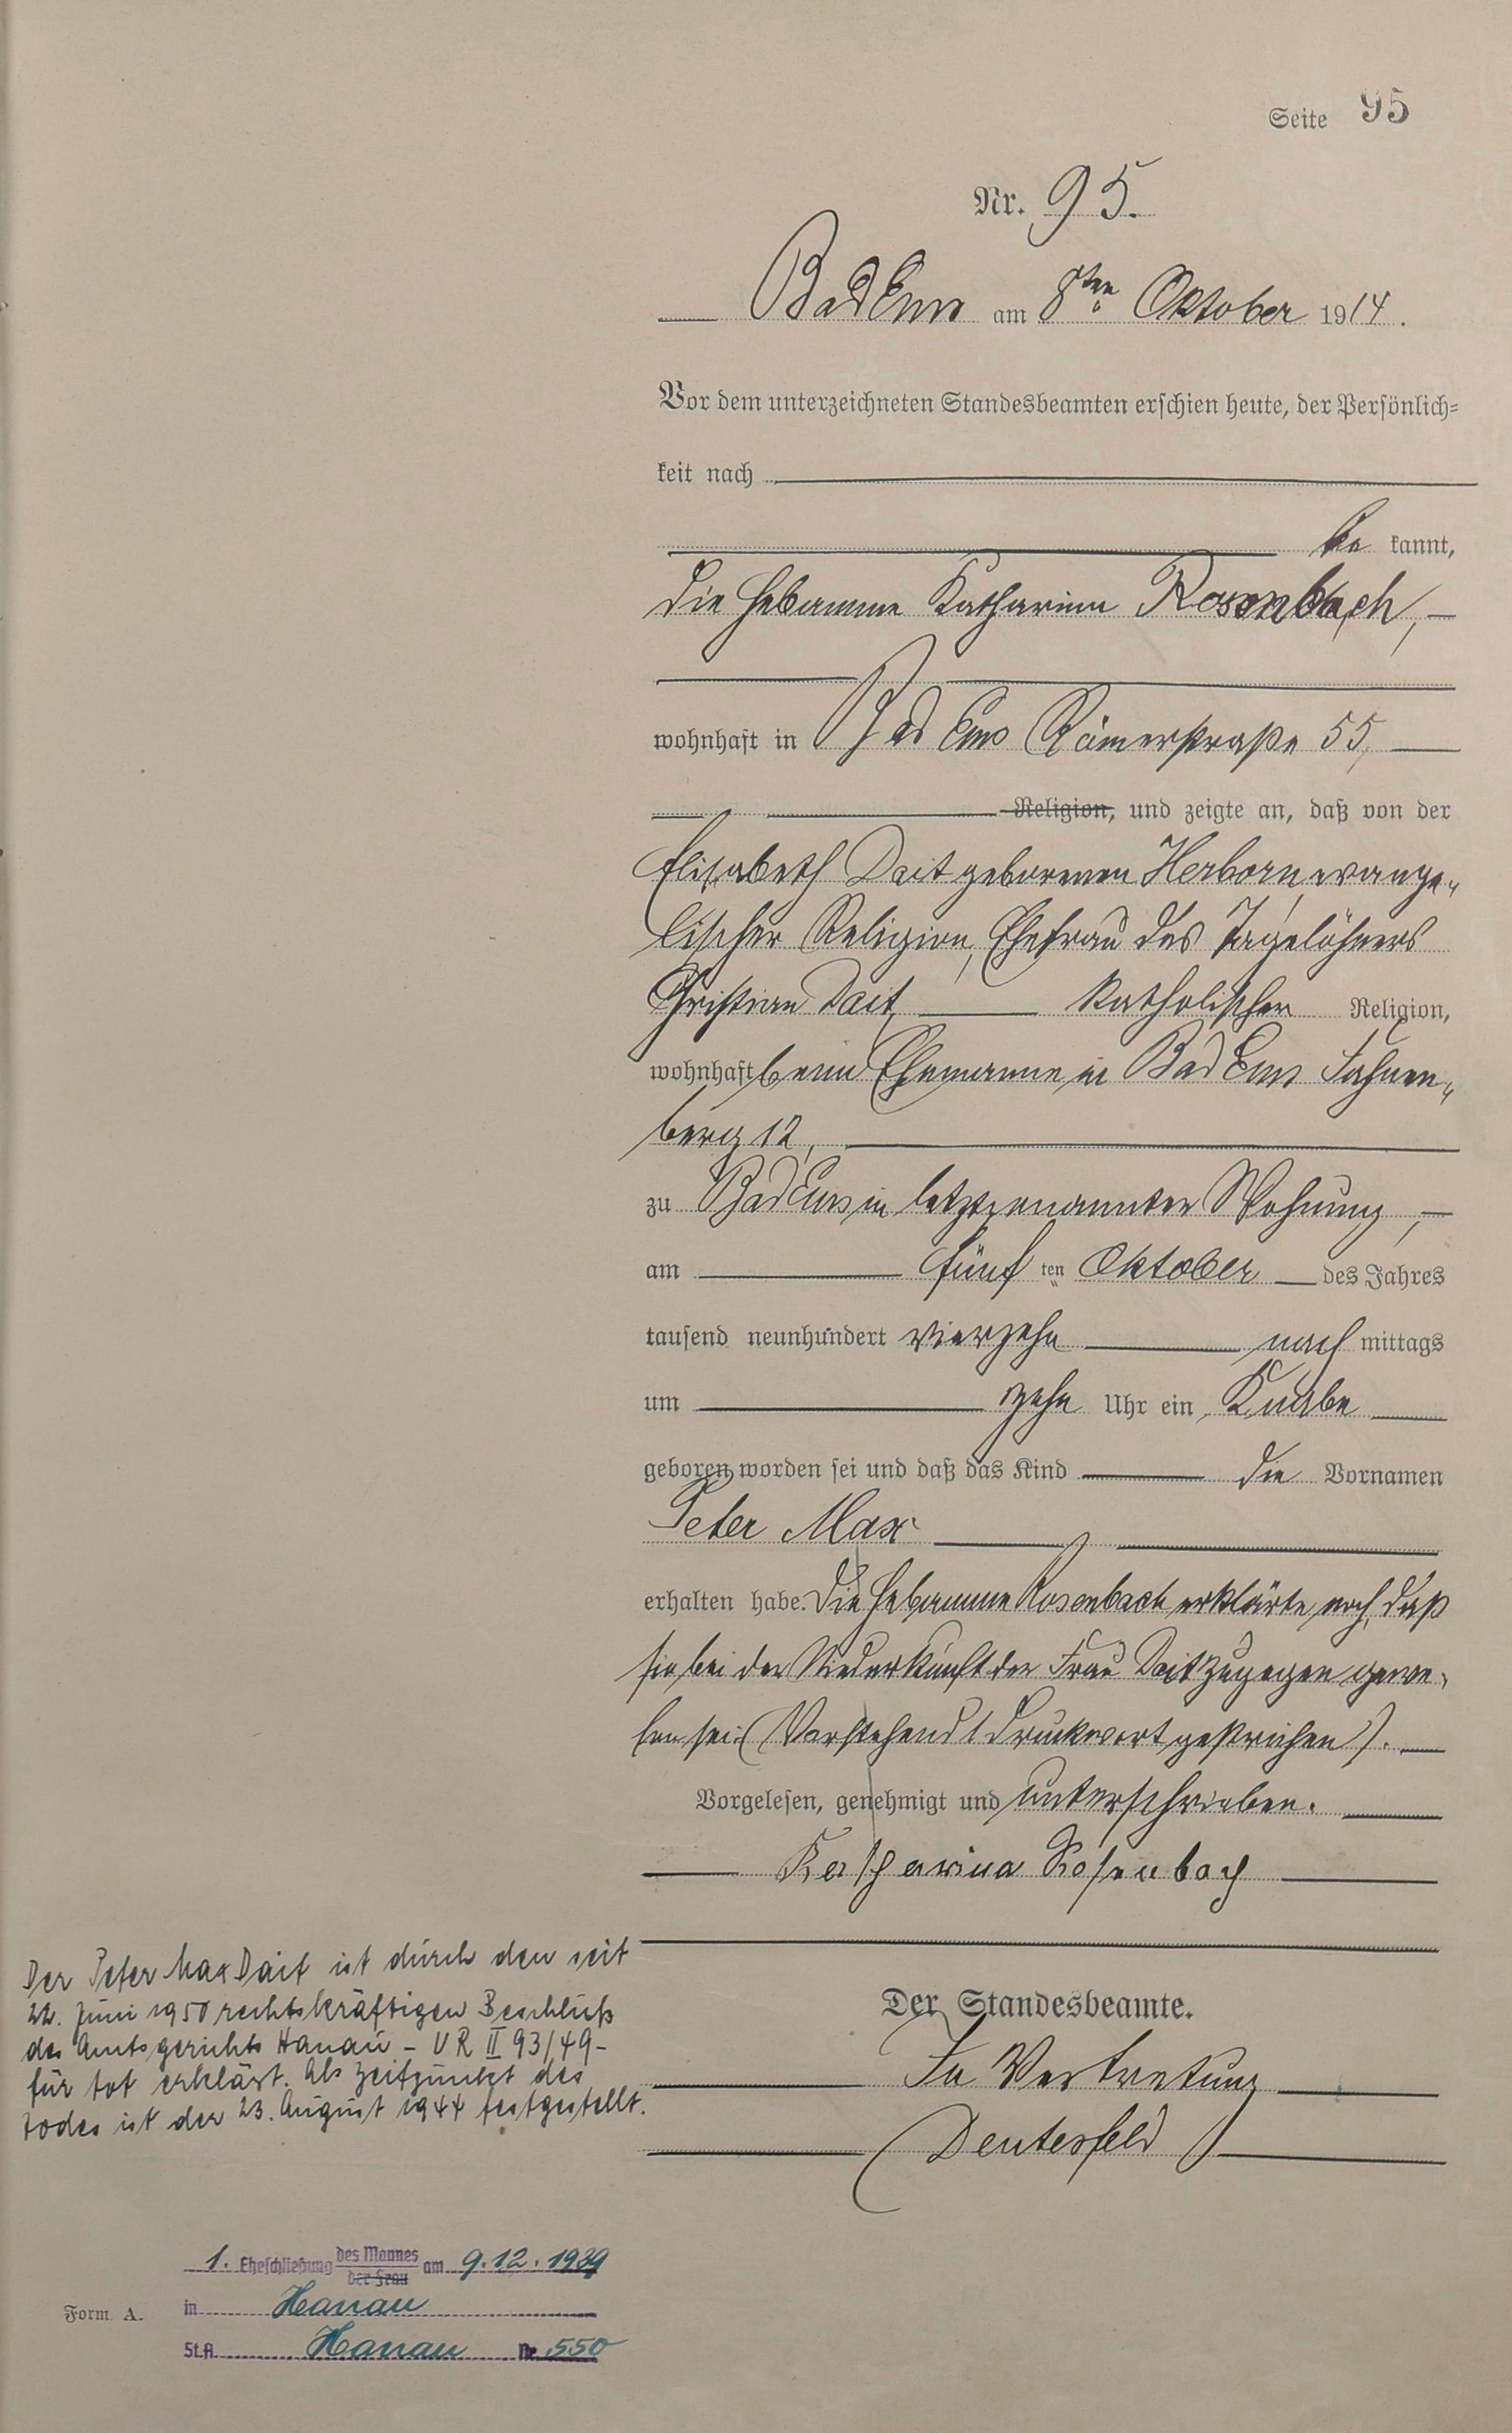 Seite 95
Nr. 95.
Bad Ems am 8ten Oktober 1914.
Vor dem unterzeichneten Standesbeamten erschien heute, der Persönlich=
keit nach
be kannt,
die Hebamme Katharina Rosenbach,
wohnhaft in Bad Ems Römerstraße 55,
Religion, und zeigte an, daß von der
Elisabeth Dait geborenen Herborn, evange„
lischer Religion, Ehefrau des Tagelöhners
Christian Dait, katholischer Religion,
wohnhaft beim Ehemanne in Bad Ems Fahnen„
berg 12,
zu Bad Ems in letztgenannter Wohnung,
am fünf ten Oktober des Jahres
tausend neunhundert vierzehn nach mittags
um zehn Uhr ein Knabe
geboren worden sei und daß das Kind die Vornamen
Peter Max
erhalten habe. Die Hebamme Rosenbach erklärte noch, daß
sie bei der Niederkunft der Frau Dait zugegen gewe„
sen sei. (Vorstehend 1 Druckwort gestrichen).
Vorgelesen, genehmigt und unterschrieben.
Katharina Rosenbach
Der Standesbeamte.
In Vertretung
Deutesfeld
Der Peter Max Dait ist durch den seit
22. Juni 1950 rechtskräftigen Beschluß
des Amtsgerichts Hanau – UR II 93/49 –
für tot erklärt. Als Zeitpunkt des
Todes ist der 23. August 1944 festgestellt.
1. Eheschließung des Mannes am 9.12.1939
der Frau
in Hanau
St.A. Hanau Nr. 550
Form. A.